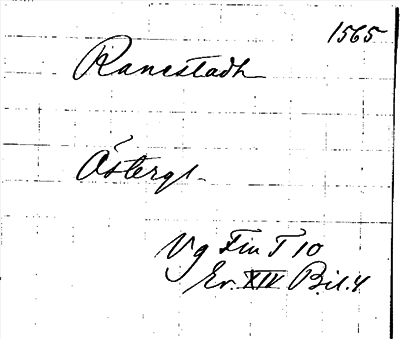 1565
Ranestadh
Östergl.
Vg Fin T 10
Er. XIV Bil. 4